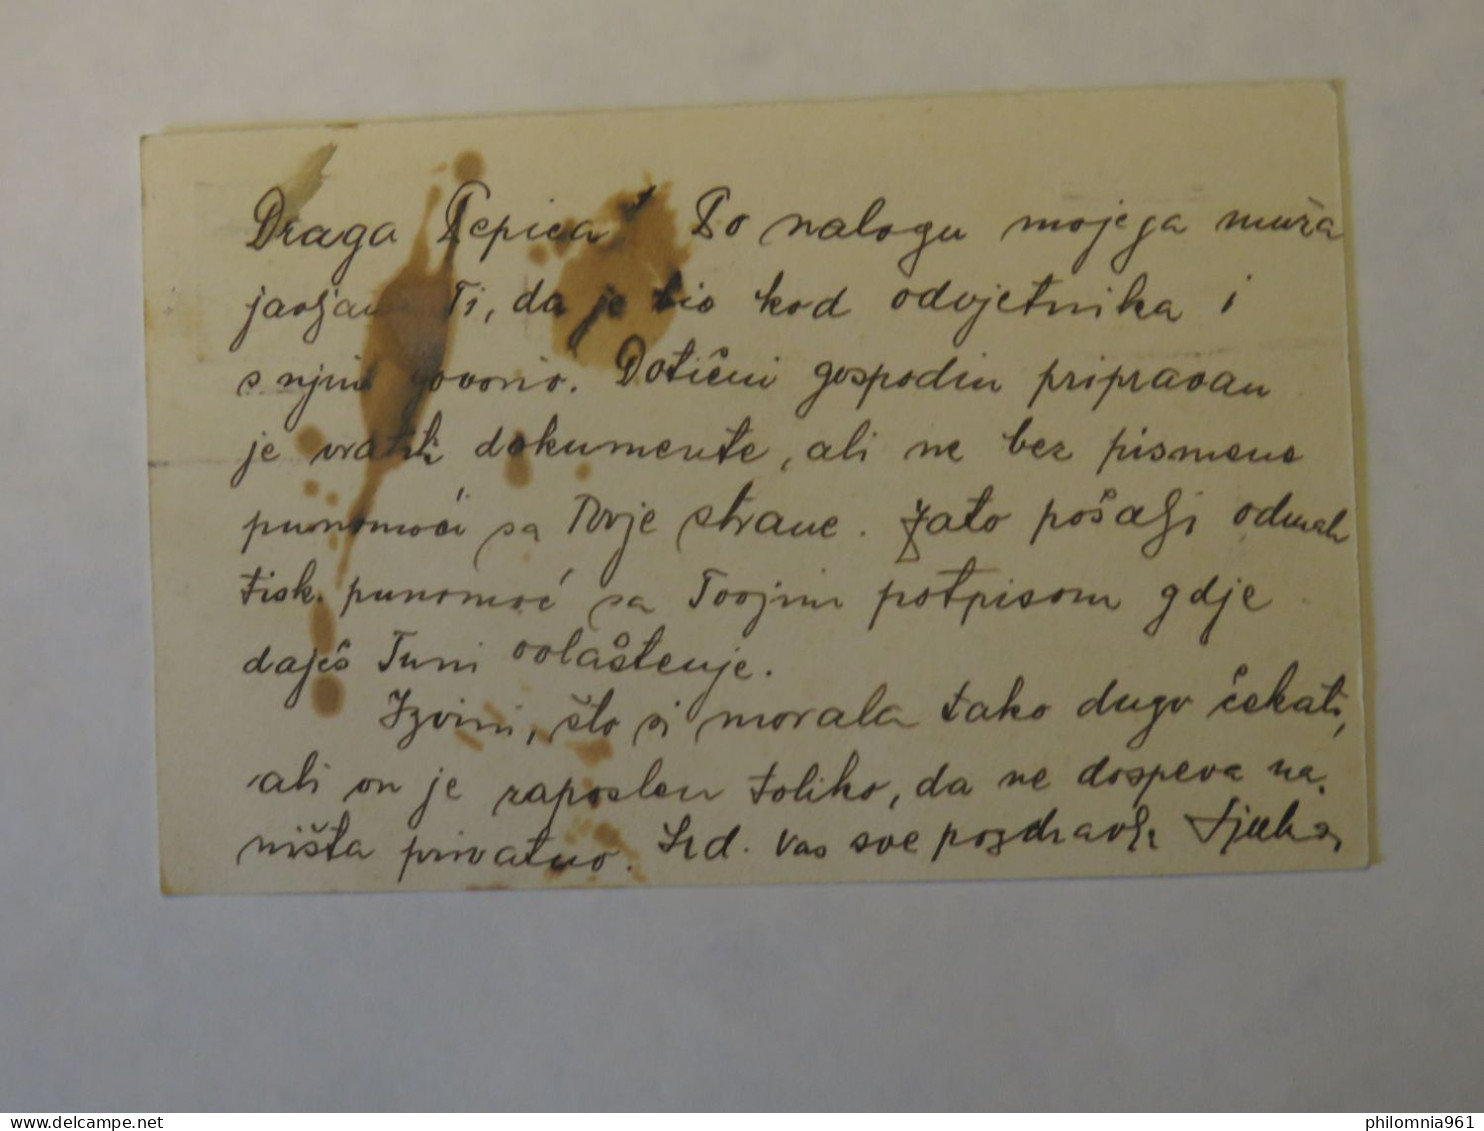 Draga Pepica! Po nalogu mojega muža
javljam Ti, da je bio kod odvjetnika i
s njim govorio. Dotični gospodin pripravan
je vratiti dokumente, ali ne bez pismene
punomoći sa Tvoje strane. Zato pošalji odmah
tisk. punomoć sa Tvojim potpisom gdje
daješ Tuni ovlaštenje.
Izvini, što si morala tako dugo čekati,
ali on je zaposlen toliko, da ne dospeva na
ništa privatno. Srd. Vas sve pozdravlja
delcampe.net
philomnia961